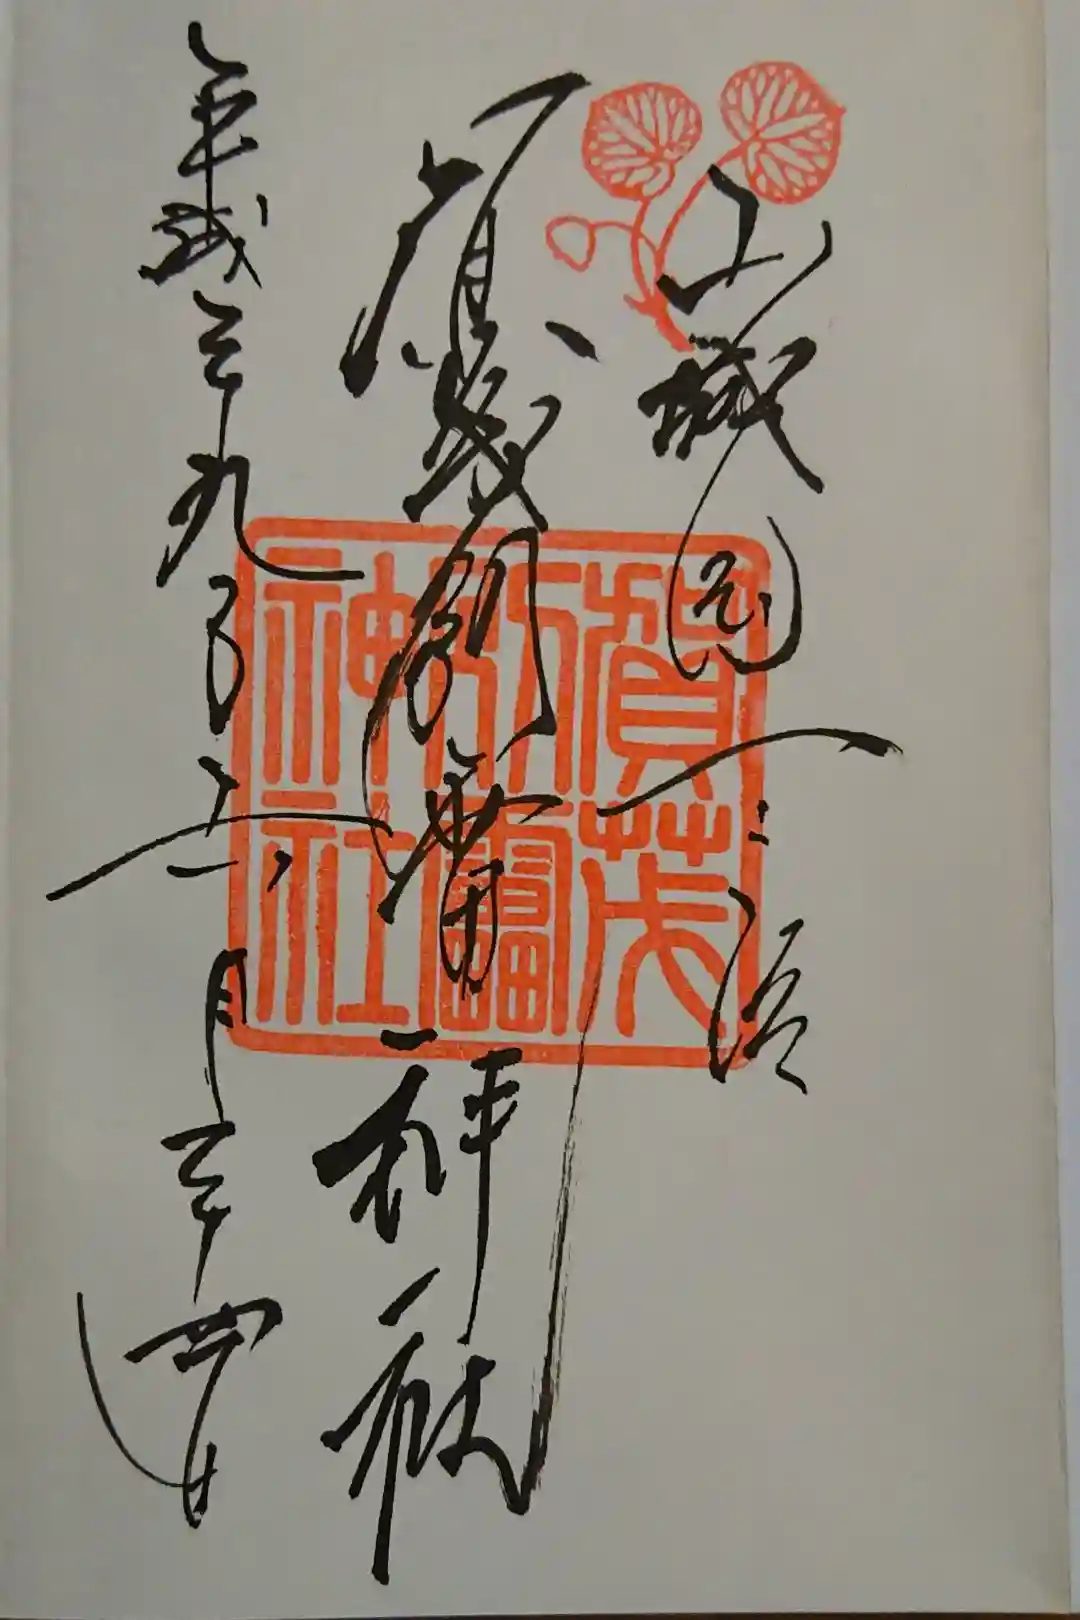 山城国一之宮
賀茂別雷神社
賀茂別雷神社
平成二十九年
月二十四日